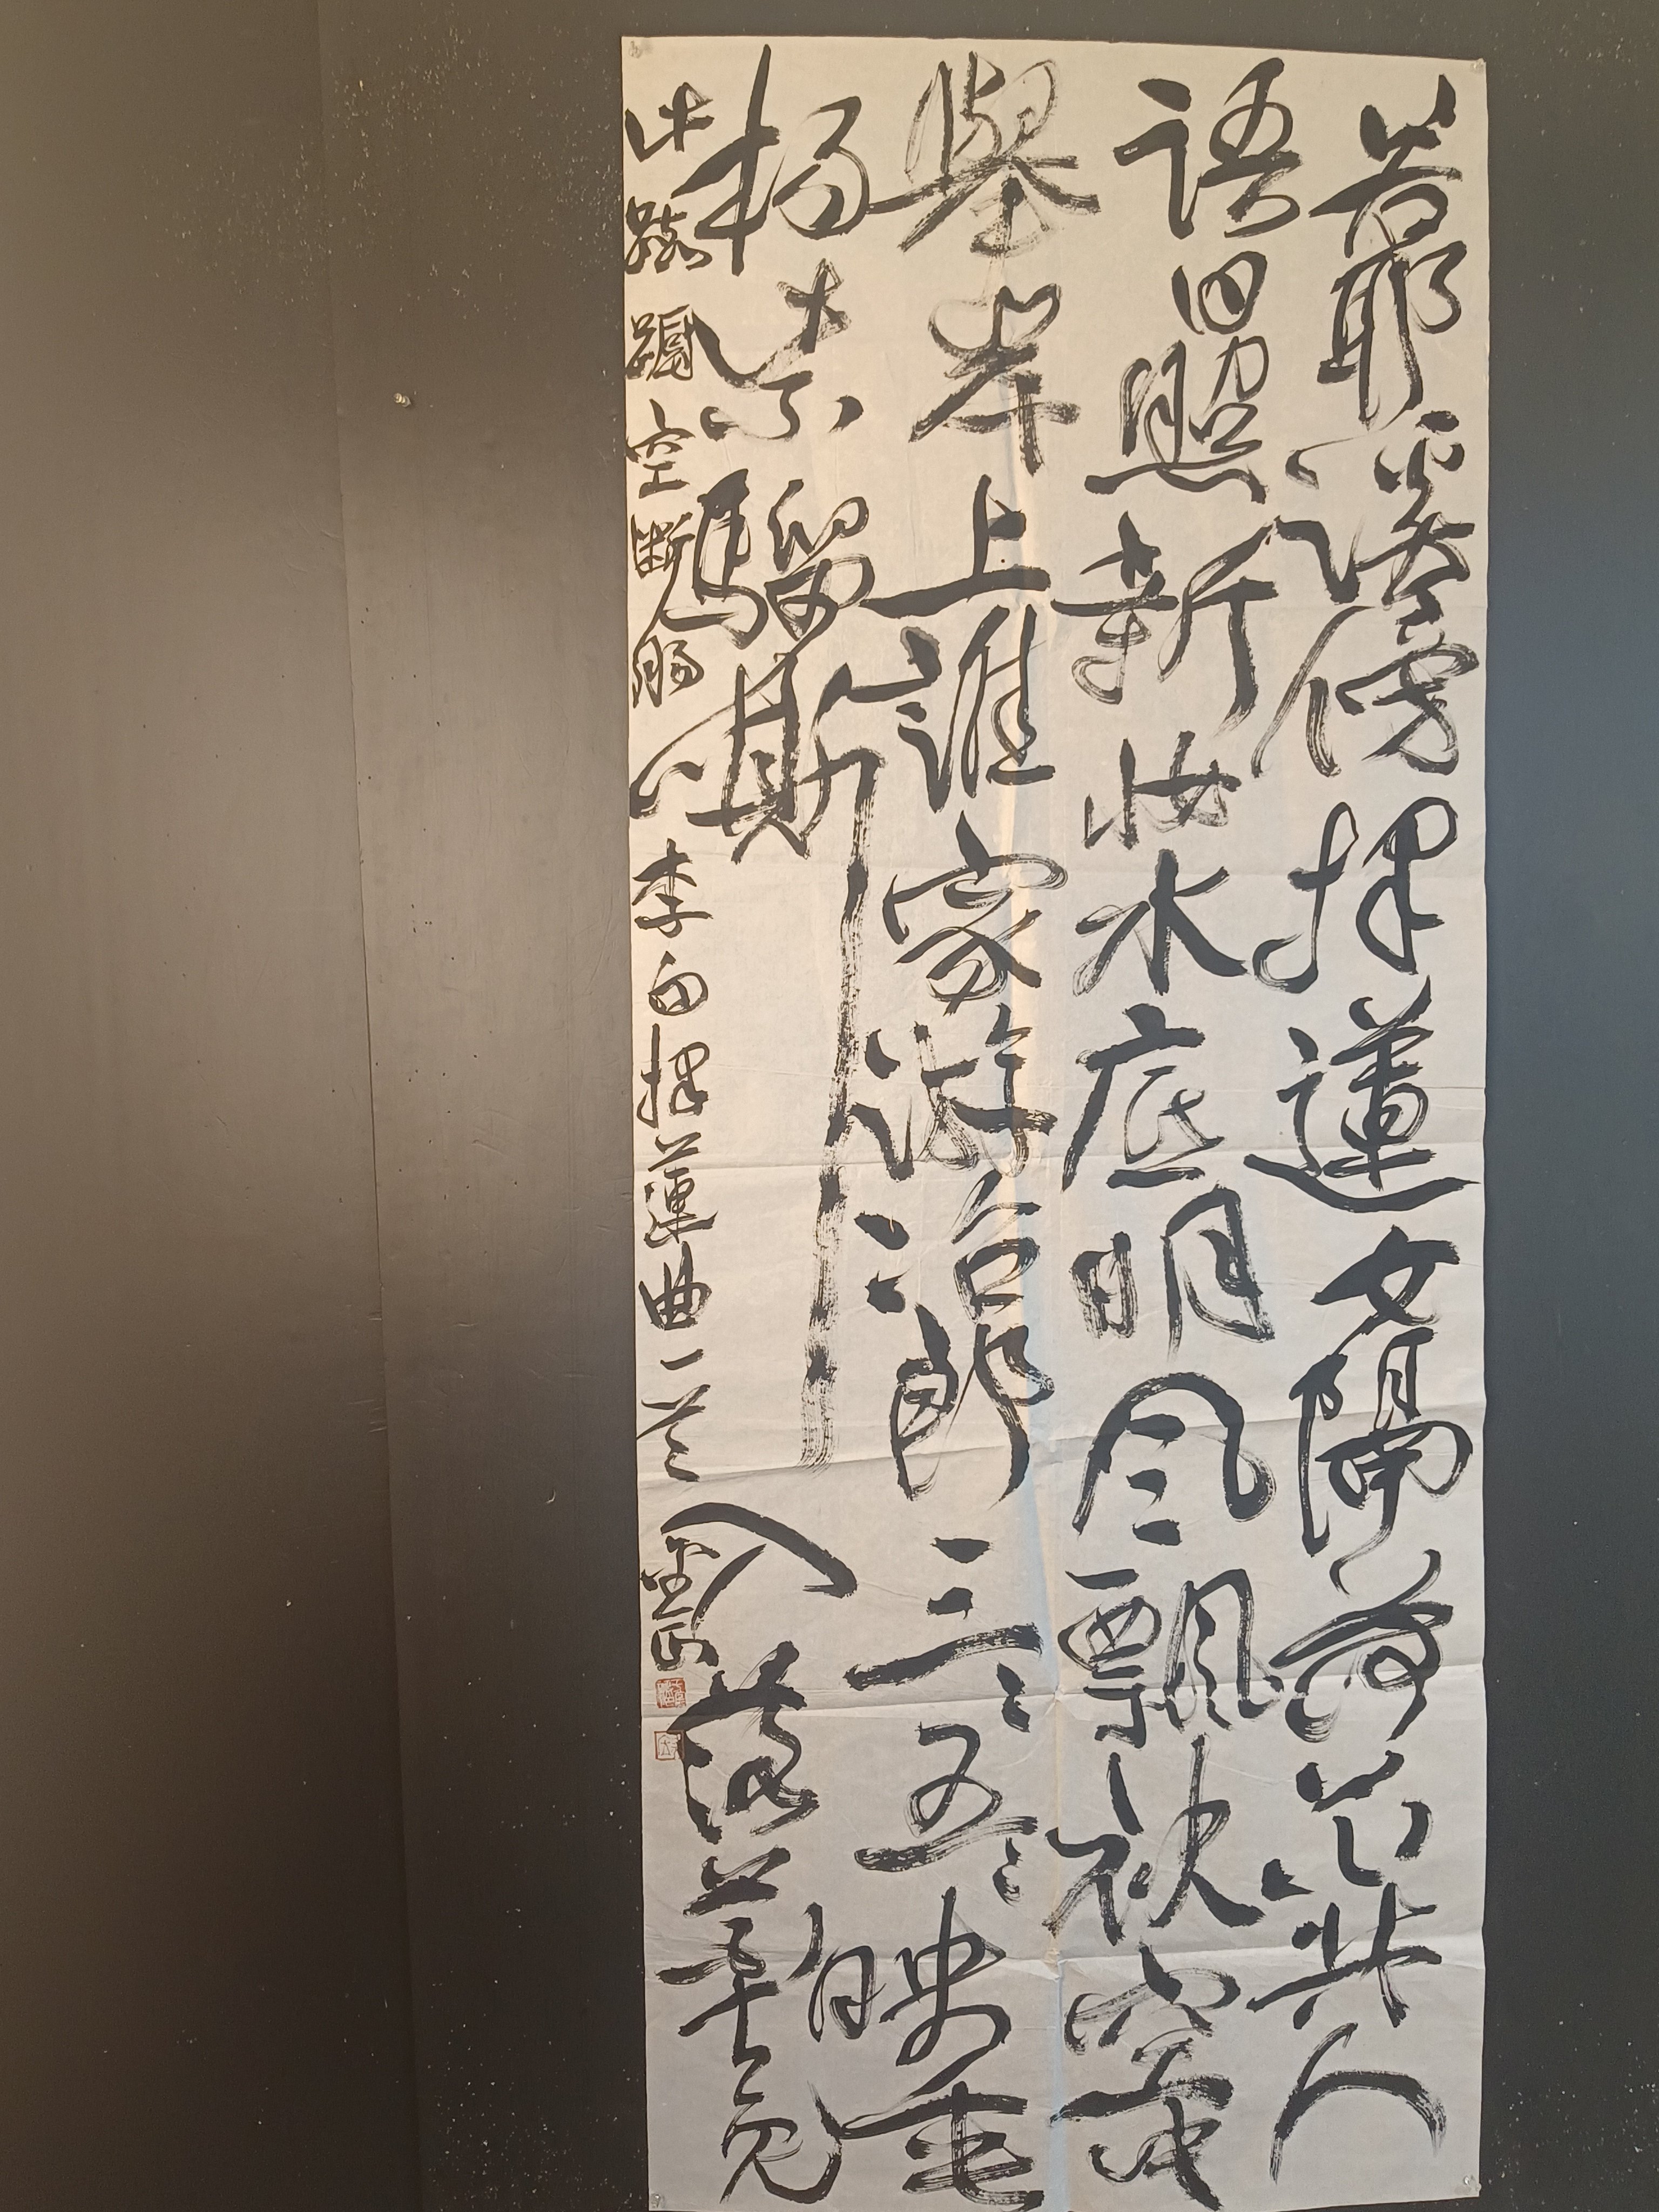 若耶溪傍採蓮女隔荷花共人
語日照新妝水底明風飄袂空中
舉岸上誰家游冶郎三三五五映垂
楊紫騮嘶入落華見
此踟躕空斷腸 李白採蓮曲一首